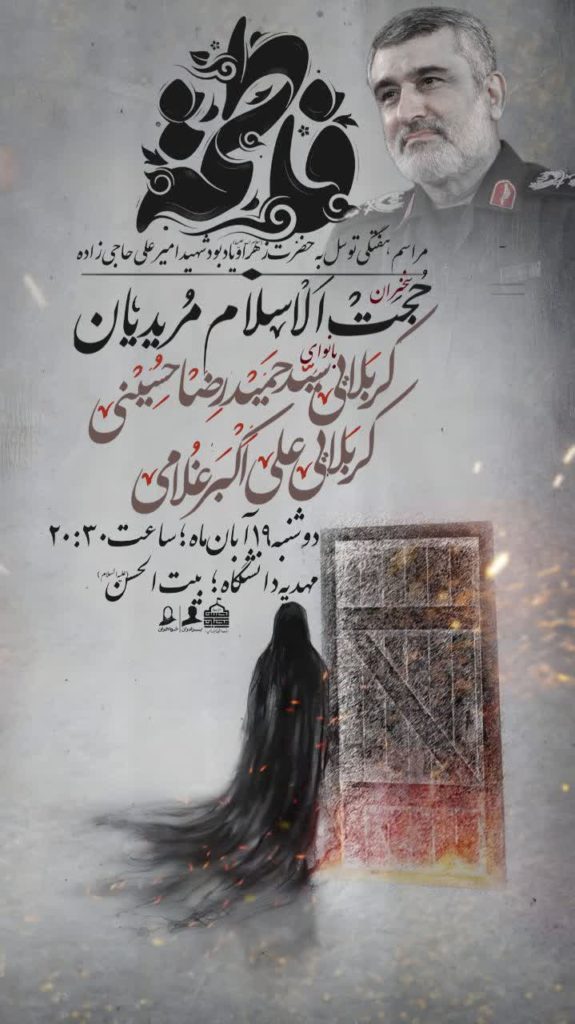 فاطمة
مراسم هفتگی توسل به حضرت زهرا و یادبود شهید امیرعلی حاجی زاده
سخنران
حُجت الاسلام مُریدیان
بانوای
کربلایی سیّد حمیدرضا حُسینی
کربلایی علی اکبر غُلامی
دوشنبه ۱۹ آبان ماه ؛ ساعت ۲۰:۳۰
مهدیه دانشگاه ؛ بیت الحسن (علیه السلام)
برادران | خواهران